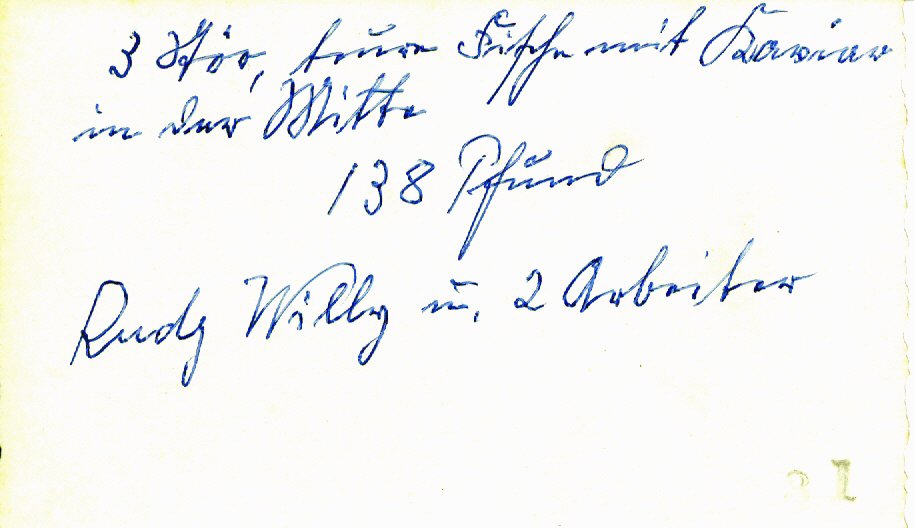 3 Stör, teure Fische mit Kaviar
in der Mitte
138 Pfund
Rudy Willy u. 2 Arbeiter